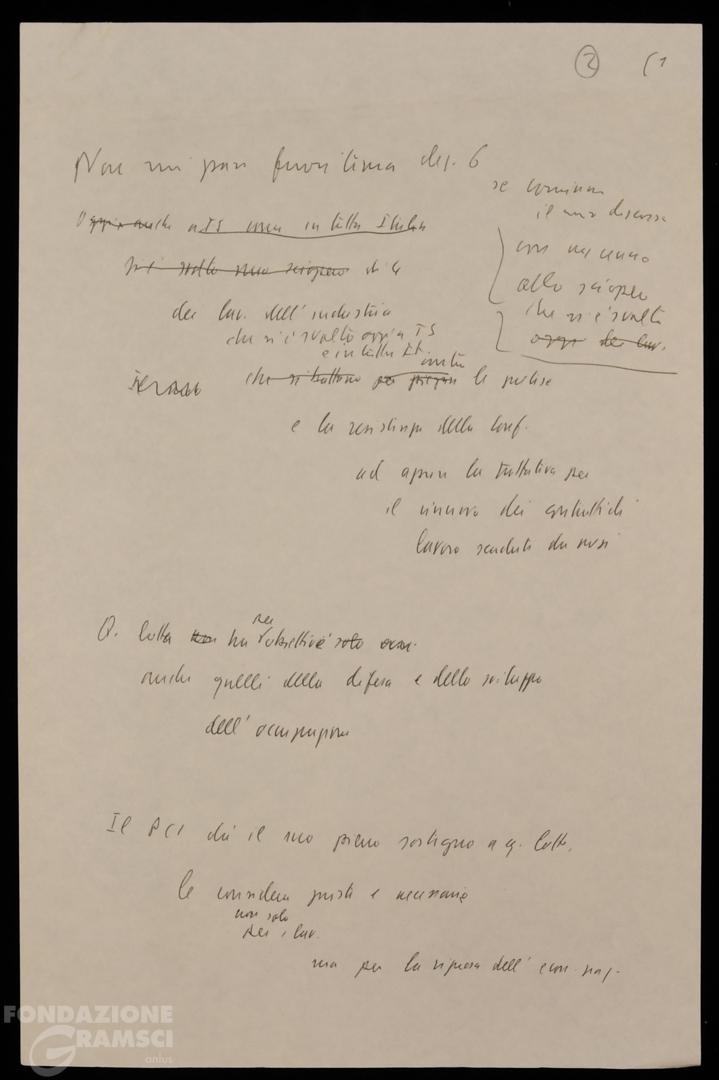 2
Non mi pare fuori tema
se comincio
il mio discorso
con un cenno
allo sciopero
che si è svolto
oggi dei lav.
Oggi anche a TS come in tutta Italia
si è svolto uno sciopero di 4
dei lav. dell'industria
che si è svolto oggi a TS
e in tutta It.
contro
che si battono per piegare le pretese
e la resistenza della Conf.
ad aprire la trattativa per
il rinnovo dei contratti di
lavoro scaduti da mesi
Q. lotta non ha per obiettivi solo econ.
anche quelli della difesa e dello sviluppo
dell'occupazione
Il PCI dà il suo pieno sostegno a q. lotte,
le considera giuste e necessarie
non solo
per i lav.
ma per la ripresa dell'econ. naz.
FONDAZIONE
GRAMSCI
onlus